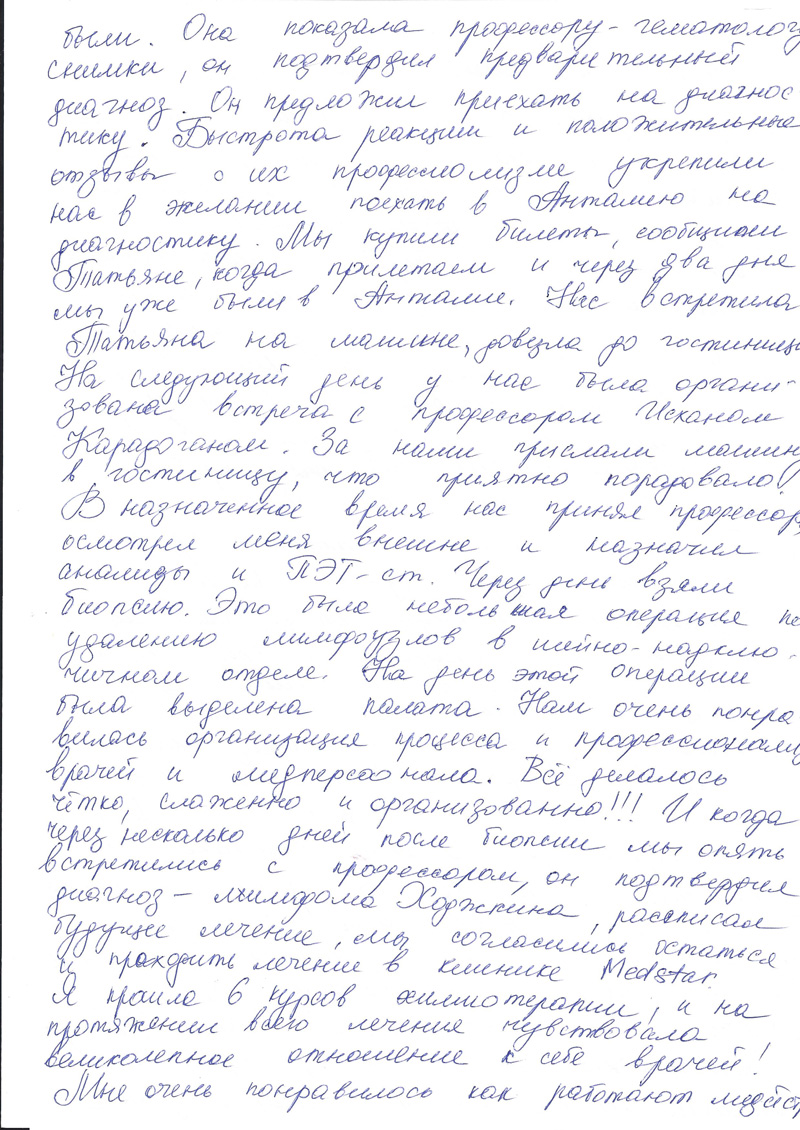 были. Она показала профессору-гематологу
снимки, он подтвердил предварительный
диагноз. Он предложил приехать на диагнос
тику. Быстрота реакции и положительные
отзывы о их профессиолизме укрепили
нас в желании поехать в Анталию на
диагностику. Мы купили билеты, сообщили
Татьяне, когда прилетаем и через два дня
мы уже были в Анталии. Нас встретила
Татьяна на машине, довезла до гостиницы
На следующий день у нас была органи-
зована встреча с профессором Исханом
Карадоганом. За нами прислали машину
в гостиницу, что приятно порадовало!
В назначенное время нас принял профессор,
осмотрел меня внешне и назначил
анализы и ПЭТ-ст. Через день взяли
биопсию. Это была небольшая операция по
удалению лимфоузлов в шейно-надклю-
чичном отделе. На день этой операции
была выделена палата. Нам очень понра
вилась организация процесса и профессионализ
врачей и медперсонала. Всё делалось
чётко, слаженно и организованно!!! И когда
через несколько дней после биопсии мы опять
встретились с профессором, он подтвердил
диагноз – лимфома Ходжкина, рассписал
будущее лечение, мы согласились остаться
и проходить лечение в клинике Medstar.
Я прошла 6 курсов химиотерапии, и на
протяжении всего лечение чувствовала
великолепное отношение к себе врачей!
Мне очень понравилось как работают медсест